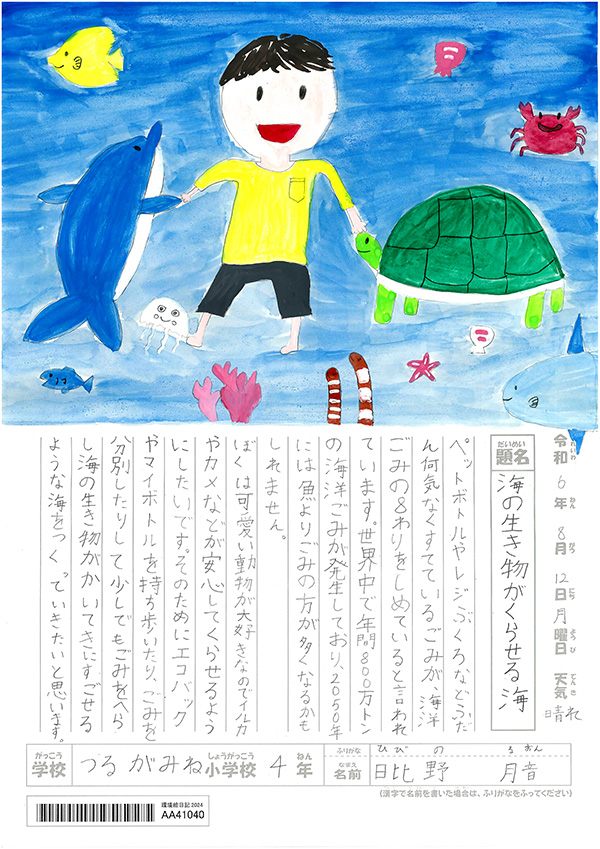 令和6年8月12日月曜日 天気 晴れ
れいわ ねん がつ にち ようび てんき
だいめい
題名 海の生き物がくらせる海
ペットボトルやレジぶくろなどふだ
ん何気なくすてているごみが、海洋
ごみの8わりをしめていると言われ
ています。世界中で年間800万トン
の海洋ごみが発生しており、2050年
には魚よりごみの方が多くなるかも
しれません。
ぼくは可愛い動物が大好きなのでイルカ
やカメなどが安心してくらせるよう
にしたいです。そのためにエコバック
やマイボトルを持ち歩いたり、ごみを
分別したりして少しでもごみをへら
し海の生き物がかいてきにすごせる
ような海をつくっていきたいと思います。
がっこう しょうがっこう ねん ふりがな ひび の る おん
学校 つるがみね 小学校 4年 なまえ 名前 日比野 月音
(漢字で名前を書いた場合は、ふりがなをふってください)
環境絵日記2024
AA41040